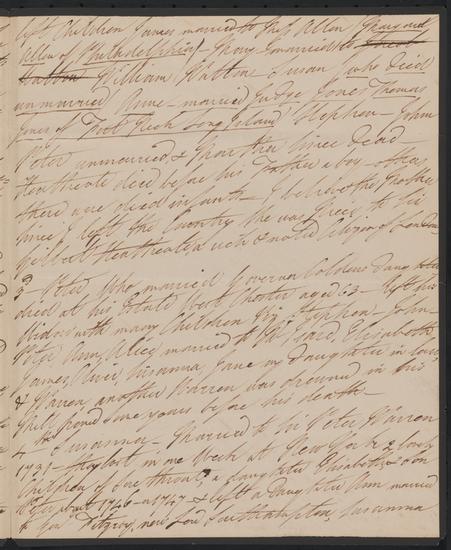 left Children James married to Miss Allen (Margaret
Allen of Philadelphia) - Mary - married to
William Walton - Susan (who died
unmarried Anne - married Judge Jones Thomas
Jones of Fort Neck Long Island Stephen - John
Peter unmarried & more than since dead -
Heathcote died before his Father a boy - others
there were died infants - I believe the Mother
since I left the Country she was Niece to Sir
Gilbert Heathcote a rich & noted of London
3 - Peter who married Governor Coldens daughter
died at his Estate West Chester aged 63 - left his
Widow with many Children Viz Stephen - John -
Peter Ann, Alice married to Mr Izard, Elizabeth
James, Oliver, Susanna, Jane my daughter in law
& Warren another Warren was drowned in his
Mill pond some years before his death -
4 - Susanna - Married to Sir Peter Warren
1731 - they lost in one Week at New York 2 lovely
Children of Sore throat, a daughter Elizabeth & Son
Peter about 1746 - or 1747 & left a Daughter Ann married
to Genl Fitzroy, now Lord Southampton, Susanna